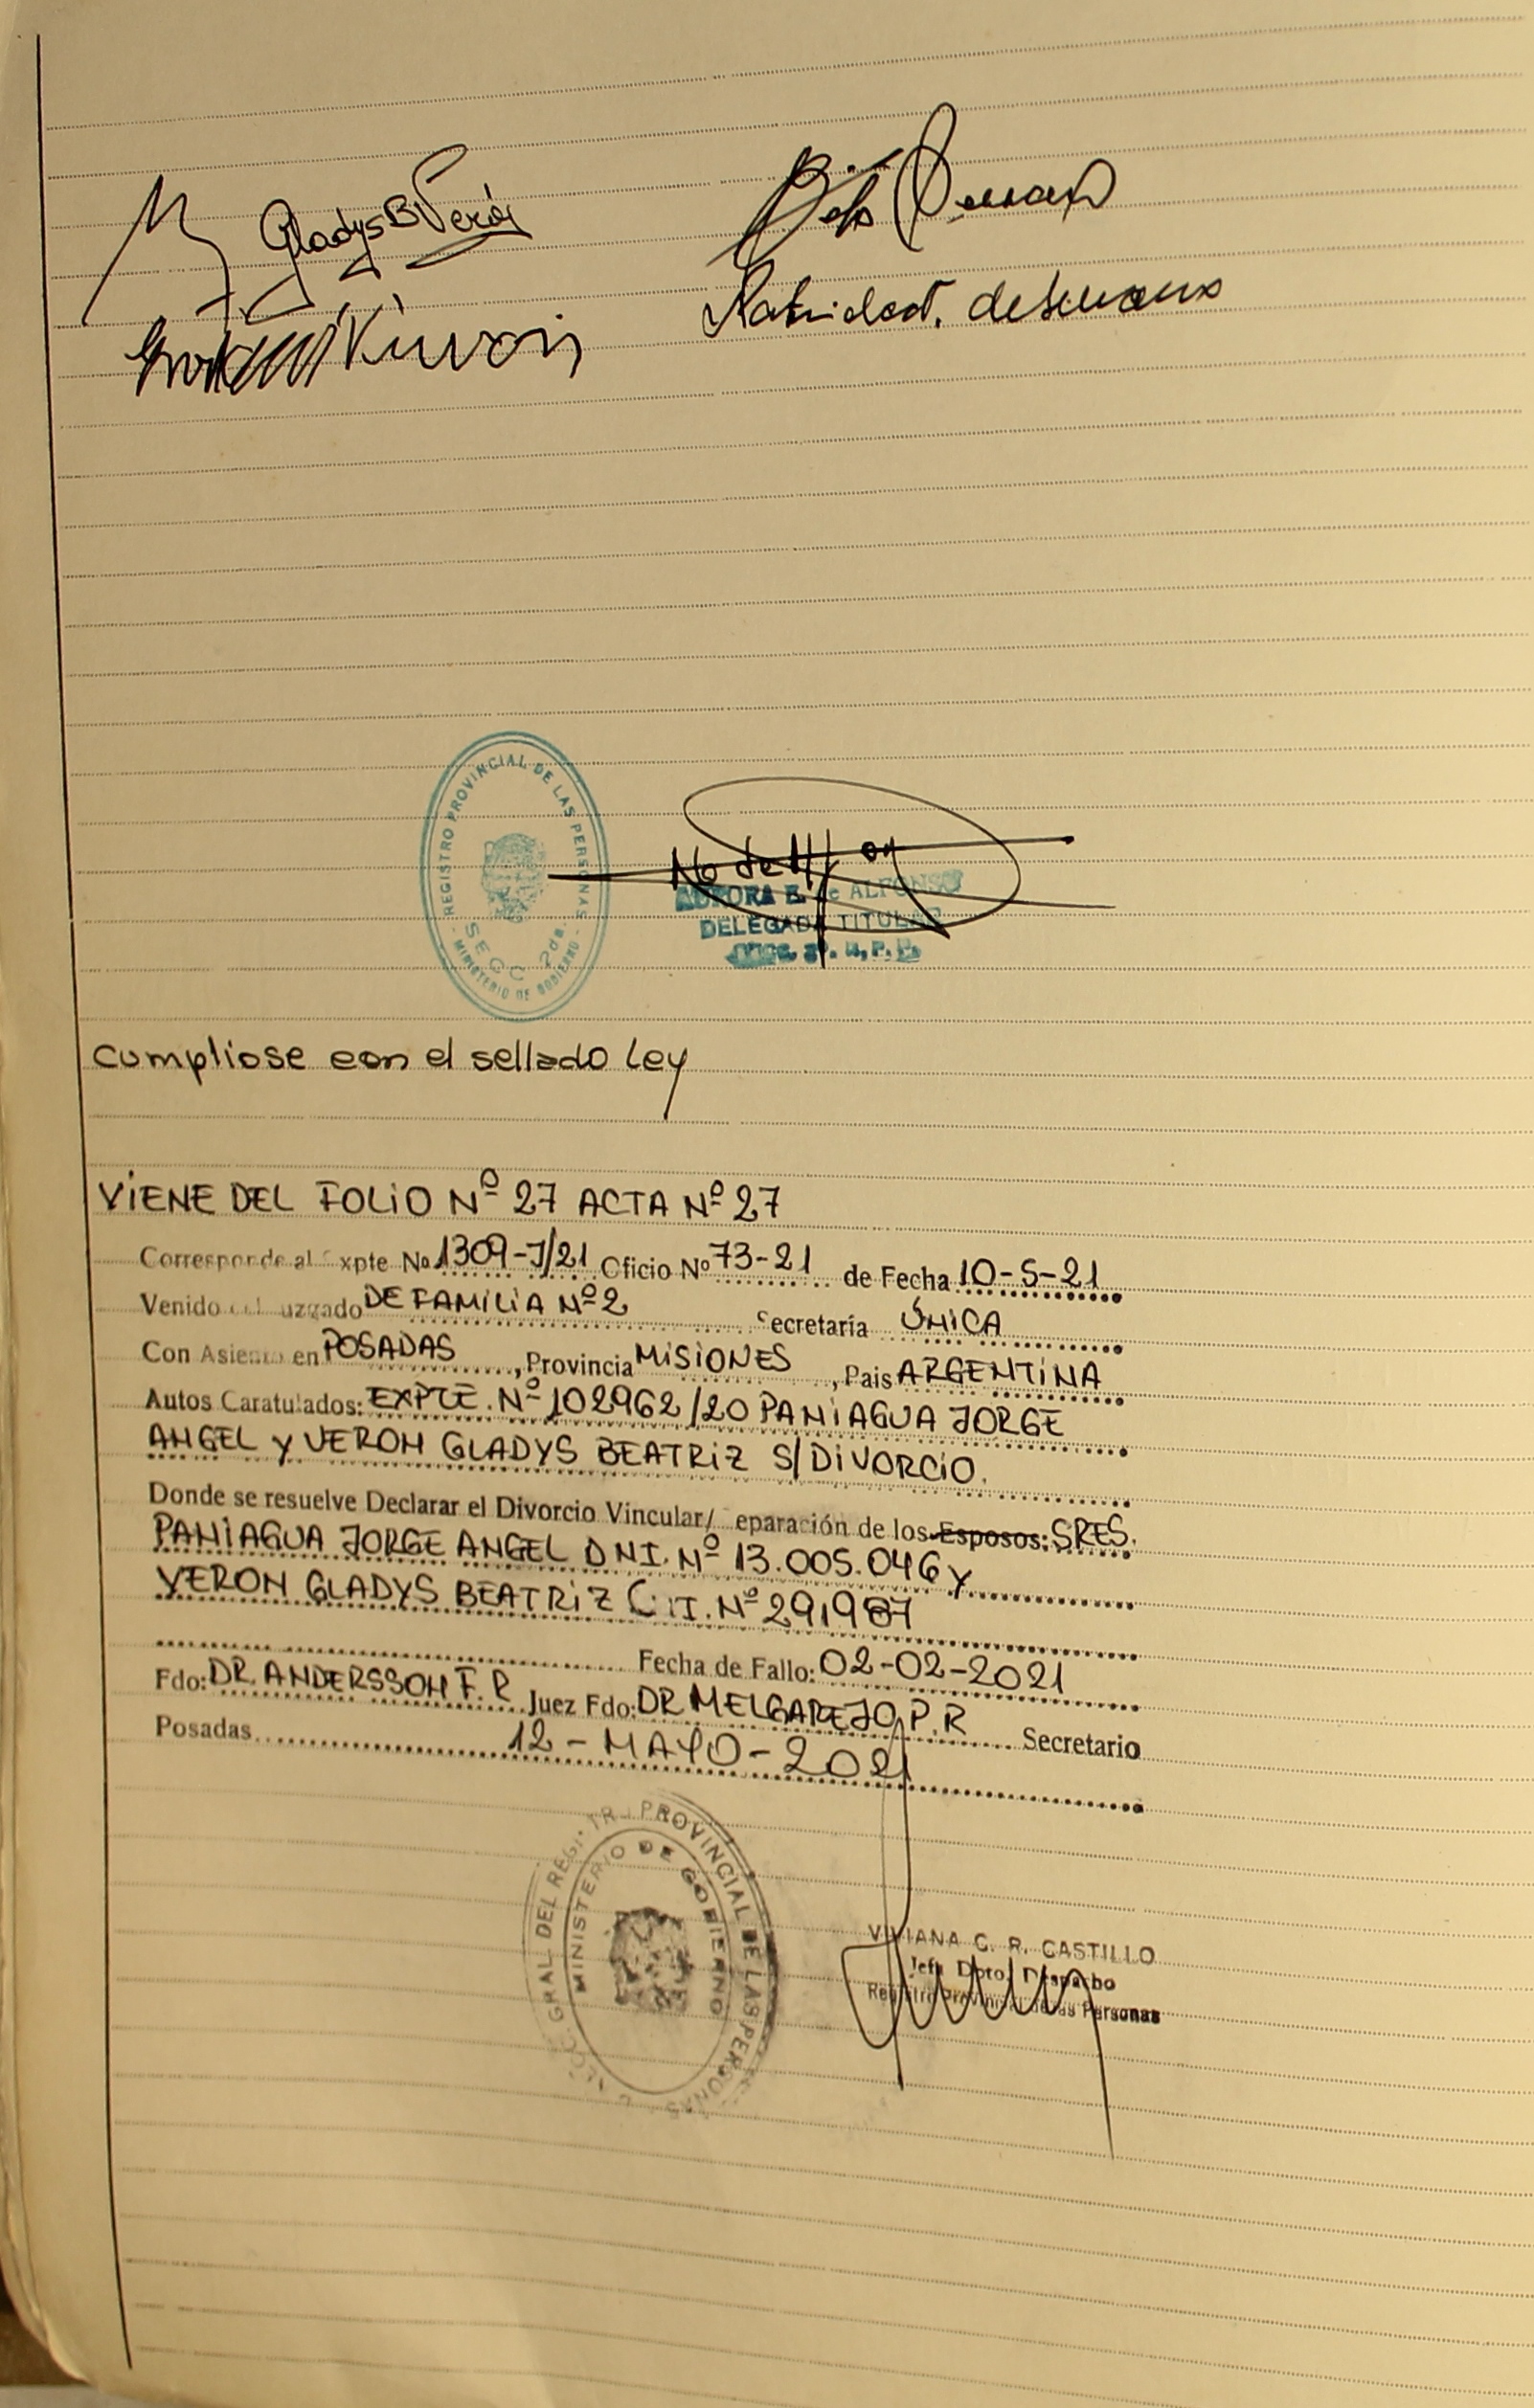 Gladys B Verón
REGISTRO PROVINCIAL DE LAS PERSONAS
SECC 2da.
- MINISTERIO DE GOBIERNO -
AURORA E. de ALFONSO
DELEGADA TITULAR
cumpliose con el sellado Ley
VIENE DEL FOLIO Nº 27 ACTA Nº 27
Corresponde al Expte No 1309-J/21 Oficio Nº 73-21 de Fecha 10-5-21
Venido del Juzgado DE FAMILIA Nº 2 Secretaría ÚNICA
Con Asiento en POSADAS, Provincia MISIONES, Pais ARGENTINA
Autos Caratulados: EXPTE. Nº 102962/20 PANIAGUA JORGE
ANGEL Y VERON GLADYS BEATRIZ S/DIVORCIO.
Donde se resuelve Declarar el Divorcio Vincular/ Separación de los Esposos: SRES.
PANIAGUA JORGE ANGEL DNI. Nº 13.005.046 Y
VERON GLADYS BEATRIZ Nº 291987
Fecha de Fallo: 02-02-2021
Fdo: DR. ANDERSSON F. R Juez Fdo: DR MELGAREJO P.R Secretario
Posadas 12 - MAYO - 2021
GRAL DEL REGISTRO PROVINCIAL DE LAS PERSONAS
MINISTERIO DE GOBIERNO
VIVIANA C. R. CASTILLO
Jefa Dpto. Despacho
Registro Provincial de las Personas